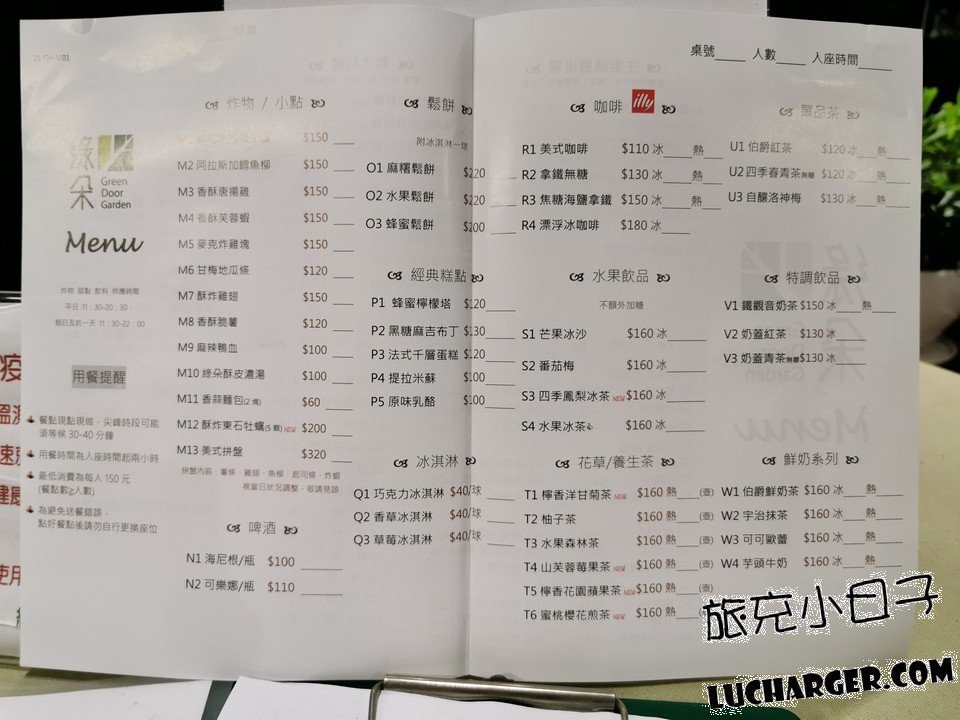 桌號_____ 人數_____ 入座時間_____
綠
朵
Green
Door
Garden
Menu
炸物 甜點 飲料 供應時間
平日 11:30-20:30
假日及前一天 11:30-22:00
用餐提醒
餐點現點現做，尖峰時段可能
須等候 30-40 分鐘
用餐時間為入座時間起兩小時
最低消費為每人 150 元
(餐點數≧人數)
為避免送餐錯誤，
點好餐點後請勿自行更換座位
炸物 / 小點
M1 $150 ___
M2 阿拉斯加鱈魚柳 $150 ___
M3 香酥唐揚雞 $150 ___
M4 香酥芙蓉蝦 $150 ___
M5 麥克炸雞塊 $150 ___
M6 甘梅地瓜條 $120 ___
M7 酥炸雞翅 $150 ___
M8 香酥脆薯 $120 ___
M9 麻辣鴨血 $100 ___
M10 綠朵酥皮濃湯 $100 ___
M11 香蒜麵包(2 塊) $60 ___
M12 酥炸東石牡蠣(5 顆)NEW $200 ___
M13 美式拼盤 $320 ___
拼盤內容：薯條、雞翅、魚柳、起司條、炸蝦
視當日狀況調整，敬請見諒
啤酒
N1 海尼根/瓶 $100 _____
N2 可樂娜/瓶 $110 _____
鬆餅
附冰淇淋一球
O1 麻糬鬆餅 $220 ___
O2 水果鬆餅 $220 ___
O3 蜂蜜鬆餅 $200 ___
經典糕點
P1 蜂蜜檸檬塔 $120 ___
P2 黑糖麻吉布丁 $130 ___
P3 法式千層蛋糕 $120 ___
P4 提拉米蘇 $100 ___
P5 原味乳酪 $100 ___
冰淇淋
Q1 巧克力冰淇淋 $40/球 ___
Q2 香草冰淇淋 $40/球 ___
Q3 草莓冰淇淋 $40/球 ___
咖啡 illy
R1 美式咖啡 $110 冰____熱____
R2 拿鐵無糖 $130 冰____熱____
R3 焦糖海鹽拿鐵 $150 冰____熱____
R4 漂浮冰咖啡 $180 冰____
水果飲品
不額外加糖
S1 芒果冰沙 $160 冰____
S2 番茄梅 $160 冰____
S3 四季鳳梨冰茶 NEW $160 冰____
S4 水果冰茶 $160 冰____
花草/養生茶
T1 檸香洋甘菊茶 NEW $160 熱____(壺)
T2 柚子茶 $160 熱____(壺)
T3 水果森林茶 $160 熱____(壺)
T4 山芙蓉莓果茶 NEW $160 熱____(壺)
T5 檸香花園蘋果茶 NEW $160 熱____(壺)
T6 蜜桃櫻花煎茶 NEW $160 熱____
單品茶
U1 伯爵紅茶 $120 冰____熱____
U2 四季春青茶無糖 $120 冰____熱____
U3 自釀洛神梅 $130 冰____熱____
特調飲品
V1 鐵觀音奶茶 $150 冰____熱____
V2 奶蓋紅茶 $130 冰____
V3 奶蓋青茶無糖 $130 冰____
鮮奶系列
W1 伯爵鮮奶茶 $160 冰____熱____
W2 宇治抹茶 $160 冰____熱____
W3 可可歐蕾 $160 冰____熱____
W4 芋頭牛奶 $160 冰____熱____
旅充小日子
LUCHARGER.COM